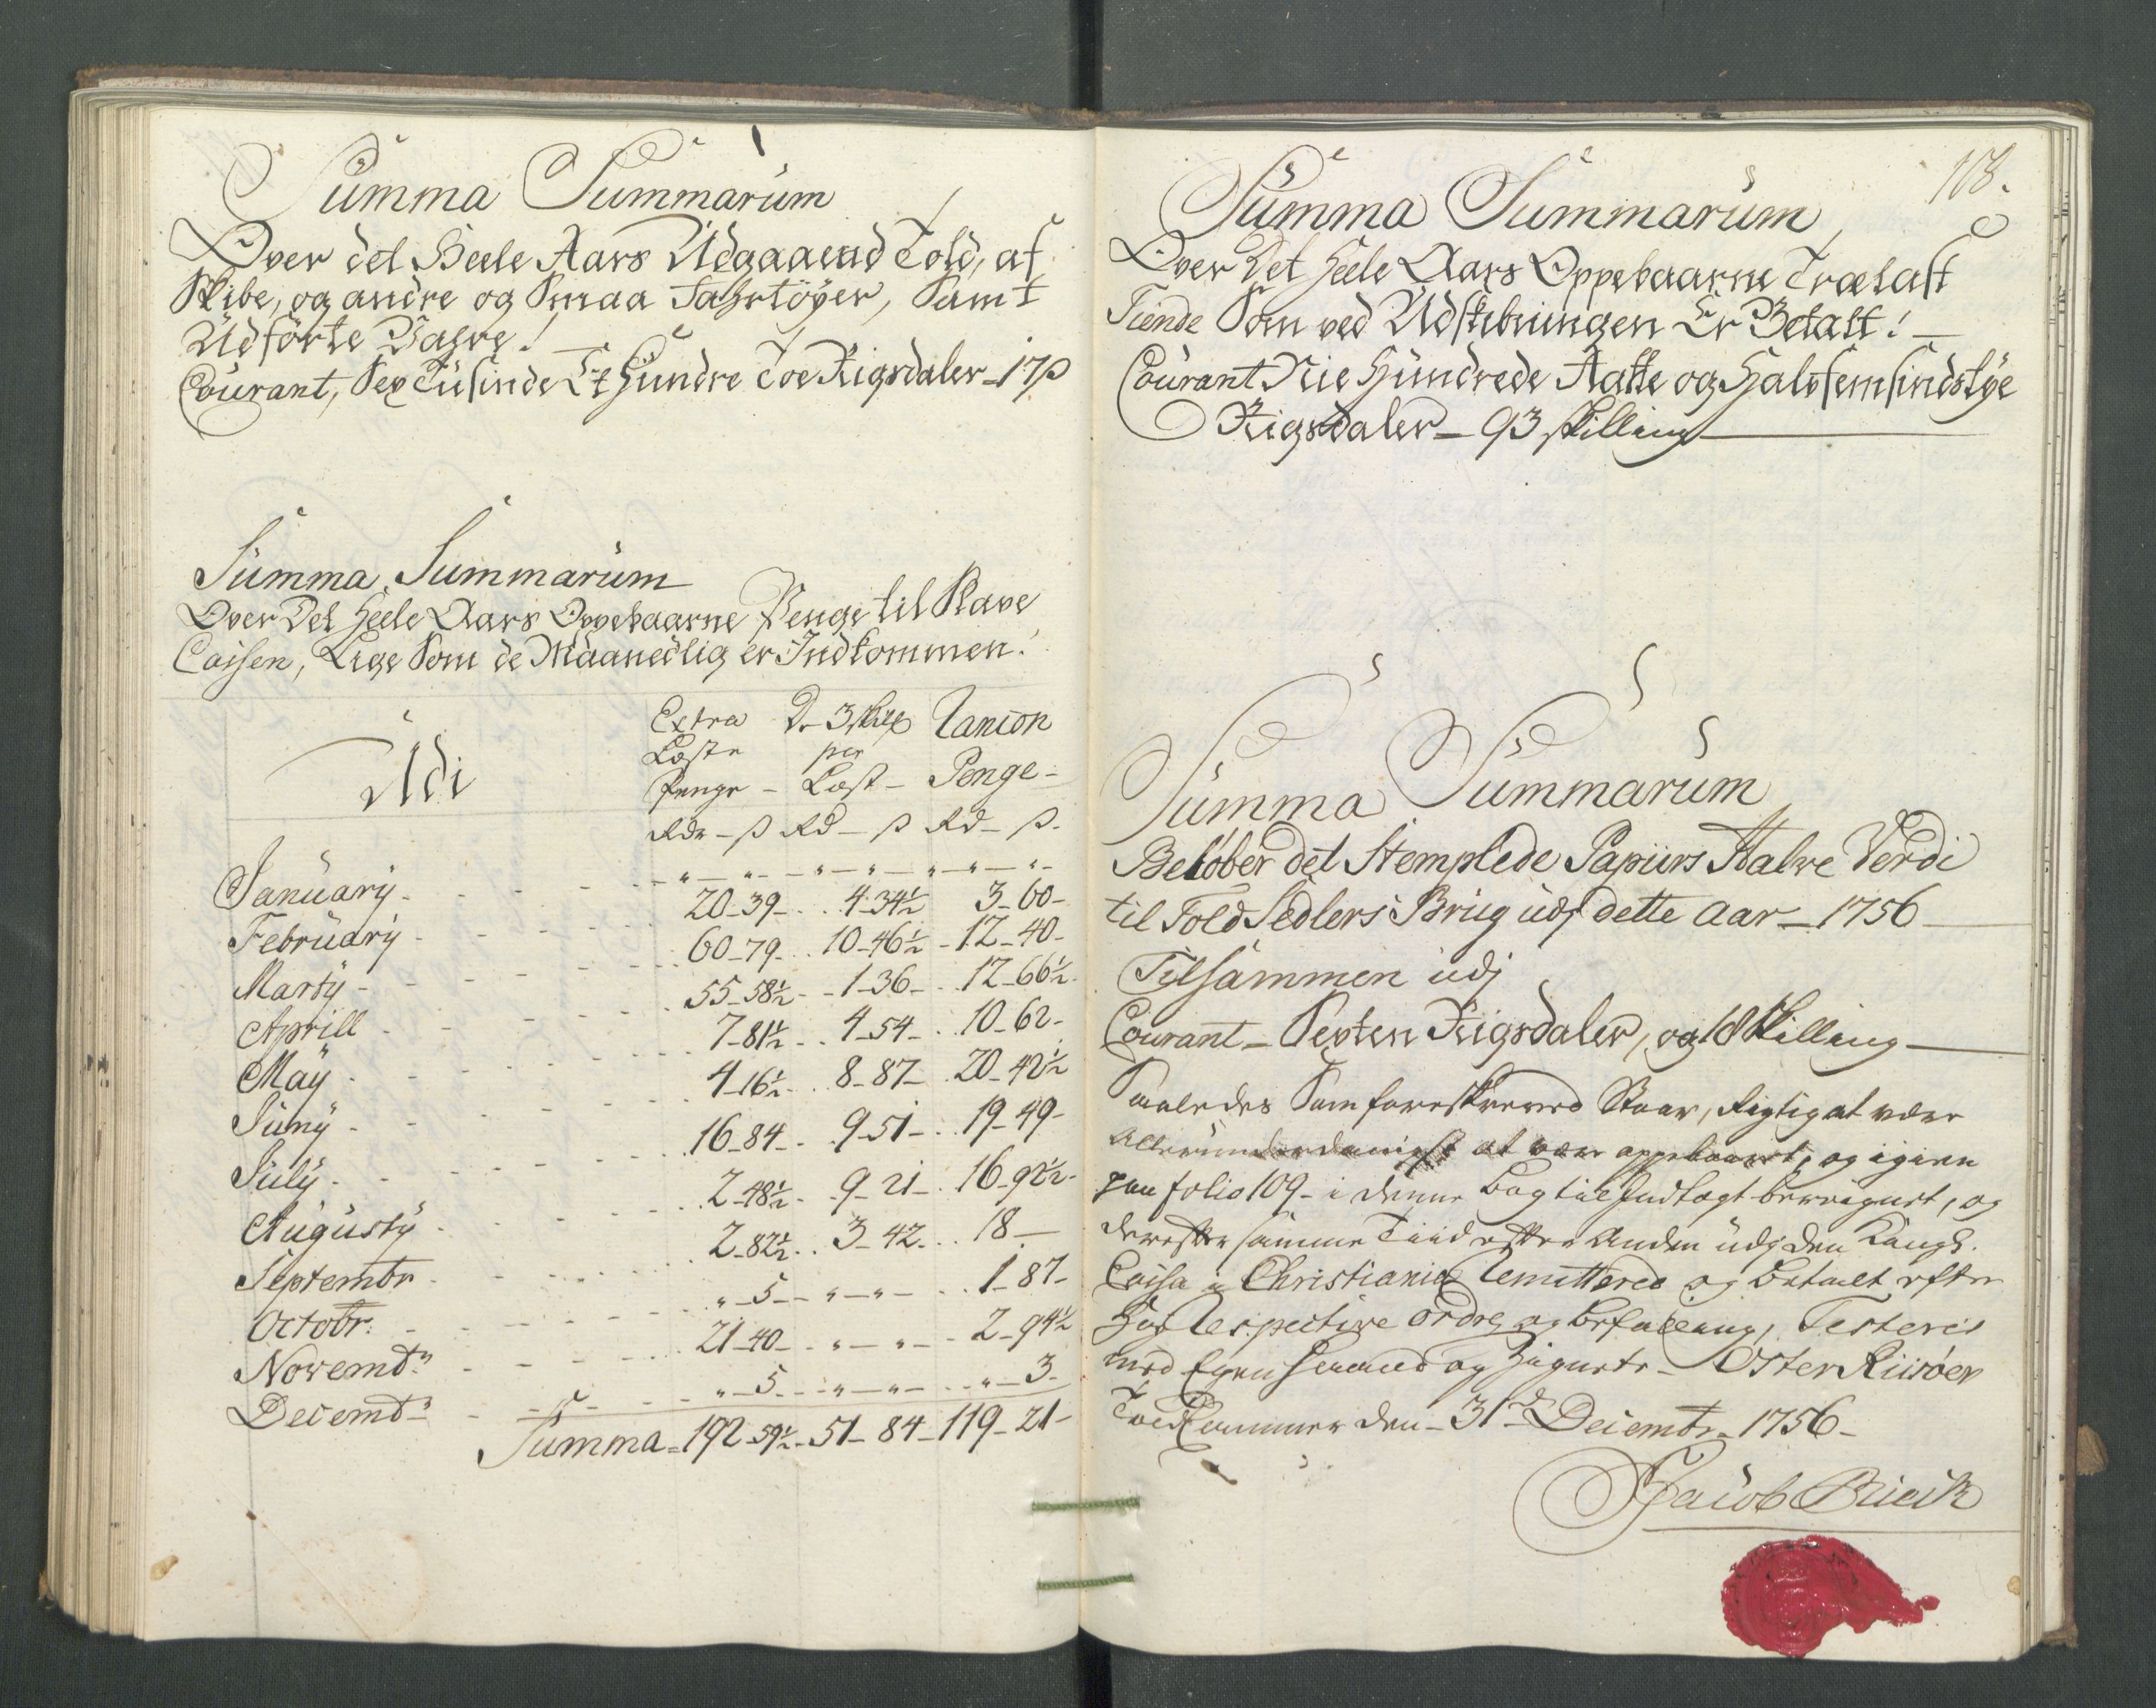 Summa Summarum
Over det Heele Aars Udgaaend Told, af
Skibe, og andre og Smaa Fahrtöyer, Samt
Udförte Vahre!
Courant, Sex Tusinde Et Hundre Toe Rigsdaler - 17 ß
Summa Summarum
Over Det Heele Aars Oppebaarne Penge til Slave
Cassen, Lige Som de Maanedlig er Indkommen!
Udi
Extra Læste Penge - D. 3 skill per Læst - Ranson Penge -
Rdr - ß Rd - ß Rd - ß.
January - " - " - " - " - " - " -
February - 20-39 - 4-34½ 3-60 -
Marty - 60-79 - 10-46½ - 12-40 -
Aprill - 55-58½ - 1-36 - 12-66½ -
May - 7-81½ - 4-54 - 10-62 -
Juny - 4-16½ - 8-87 - 20-42½
July - 16-84 - 9-51 - 19-49 -
Augusty - 2-48½ - 9-21 - 16-92½ -
Septembr - 2-82½ - 3-42 - 18 -
Octobr: - " - 5 - " - " - 1-87 -
Novembr - 21-40 - " - " - 2-94½
Decembr - " - 5 - " - " - " - 3 -
Summa - 192-59½ - 51-84 - 119-21 -
108.
Summa Summarum
Over Det Heele Aars Oppebaarne Trælast
Tiende Som ved Udskibningen Er Betalt!
Courant Nie Hundrede Aatte og Halvfemsindstye
Rigsdaler - 93 skilling
Summa Summarum
Belöber det Stemplede Papiirs Halve Verdi
til Told Sedlers Brug udj dette Aar - 1756
Tilsammen udj
Courant - Sexten Rigsdaler, og 18 Skilling
Saaledes Som foreskreved Staar, Rigtig at være
Allerunderdanigst at være oppebaaret, og igien
paa folio 109 - i denne Bog til Indtægt beregnet, og
derefter samme Tiid efter Anden udj den Kongl.
Cassa i Christiania Remittered og betalt efter
Respective Ordre og befaling, Testeris
med Egen Haand og Signete - Öster Riisöer
Told Cammer den - 31te Decembr - 1756 -
Jacob